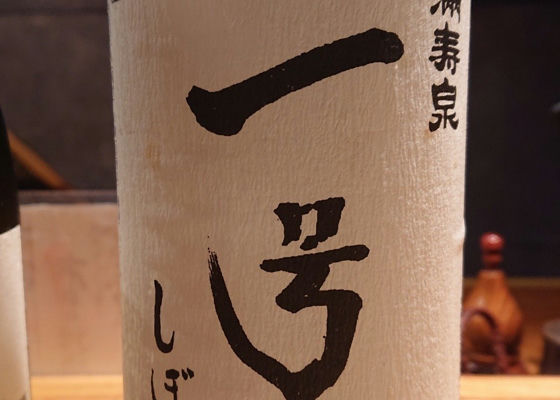 満寿泉
一号
しぼ